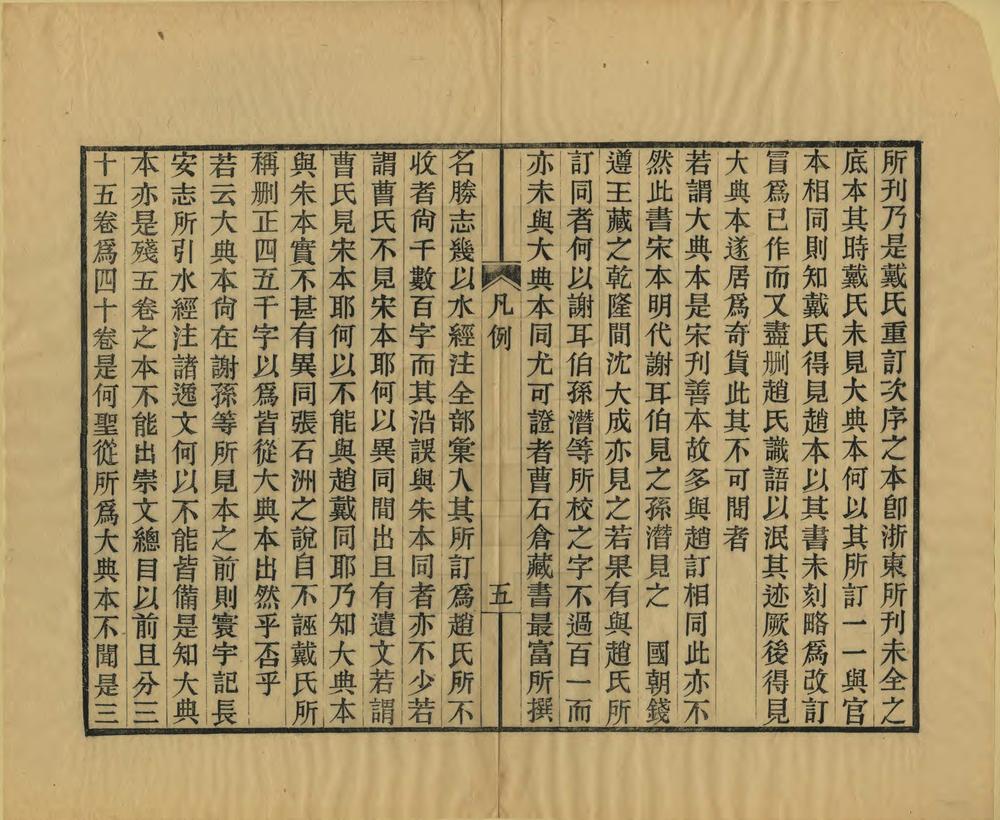 所刊乃是戴氏重訂次序之本卽浙東所刊未全之
底本其時戴氏未見大典本何以其所訂一一與官
本相同則知戴氏得見趙本以其書未刻略爲改訂
冒爲已作而又盡删趙氏識語以泯其迹厥後得見
大典本遂居爲奇貨此其不可問者
若謂大典本是宋刊善本故多與趙訂相同此亦不
然此書宋本明代謝耳伯見之孫潛見之　國朝錢
遵王藏之乾隆間沈大成亦見之若果有與趙氏所
訂同者何以謝耳伯孫潛等所校之字不過百一而
亦未與大典本同尤可證者曹石倉藏書最富所撰
凡例
五
名勝志幾以水經注全部彙入其所訂爲趙氏所不
收者尙千數百字而其沿誤與朱本同者亦不少若
謂曹氏不見宋本耶何以異同間出且有遺文若謂
曹氏見宋本耶何以不能與趙戴同耶乃知大典本
與朱本實不甚有異同張石洲之說自不誣戴氏所
稱删正四五千字以爲皆從大典本出然乎否乎
若云大典本尙在謝孫等所見本之前則寰宇記長
安志所引水經注諸逸文何以不能皆備是知大典
本亦是殘五卷之本不能出崇文總目以前且分三
十五卷爲四十卷是何聖從所爲大典本不聞是三